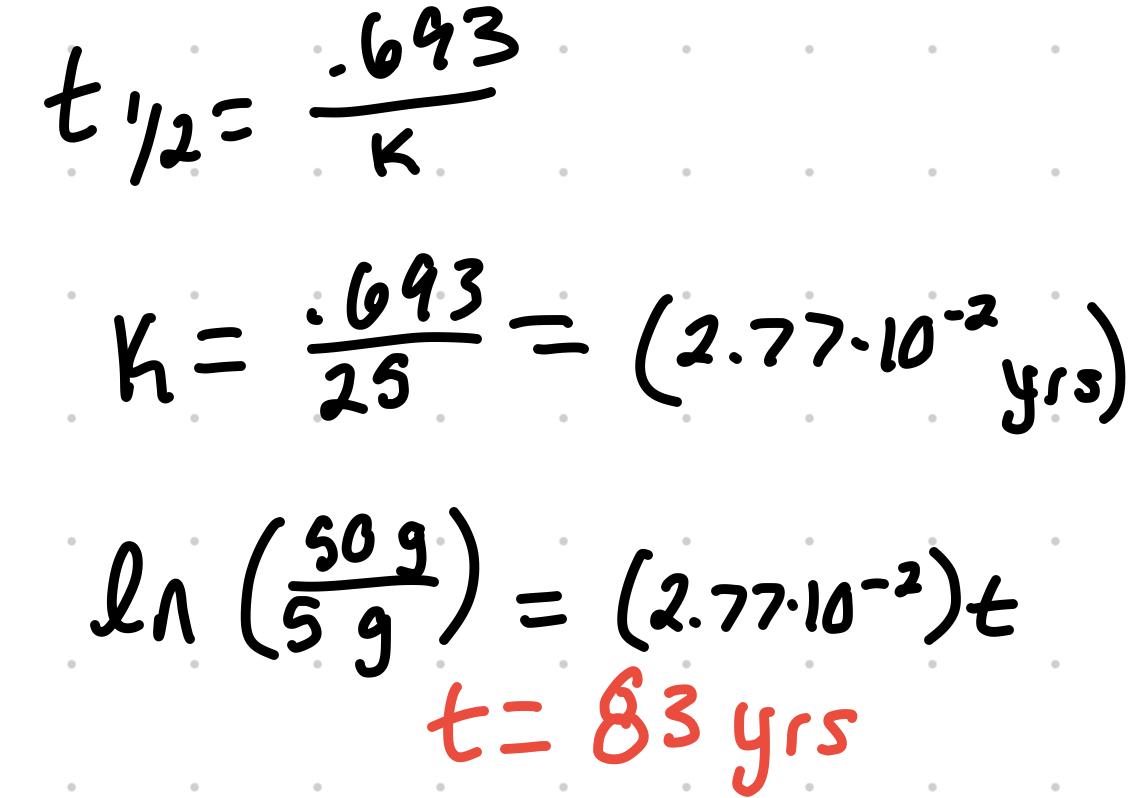 t 1/2 = .693 / K
K = .693 / 25 = (2.77·10^-2 yrs)
ln (50 g / 5 g) = (2.77·10^-2)t
t = 83 yrs